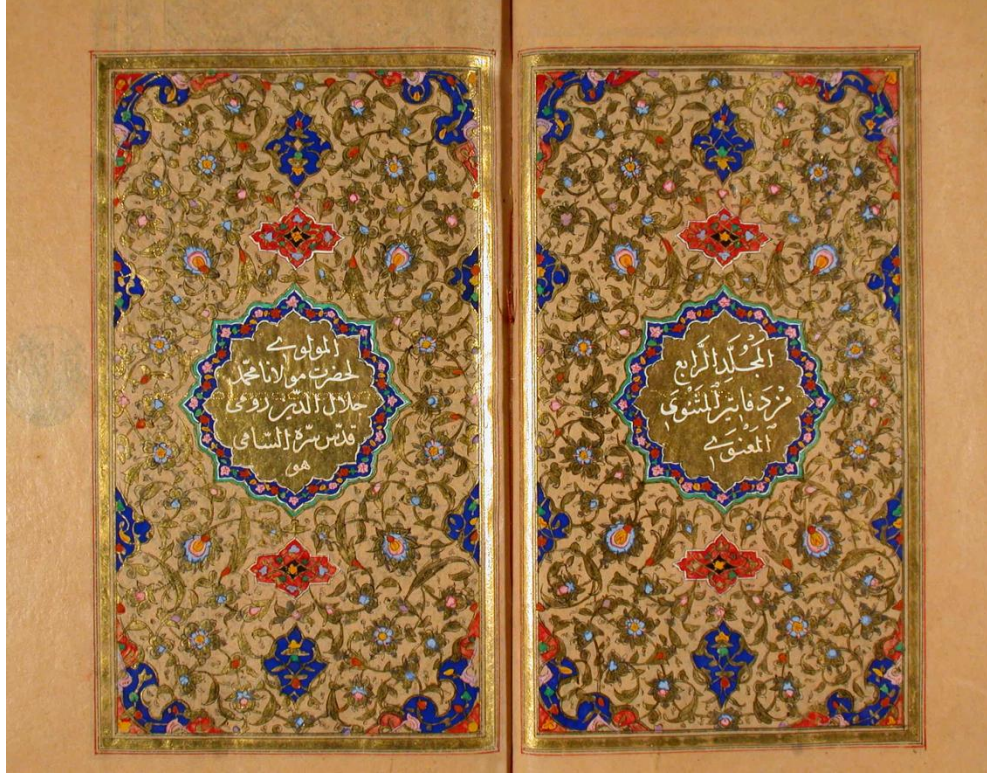 المجلد الرابع
من دفاتر المثنوي
المعنوي
المولوي
لحضرت مولانا محمد
جلال الدين رومي
قدس سره السامي
هو